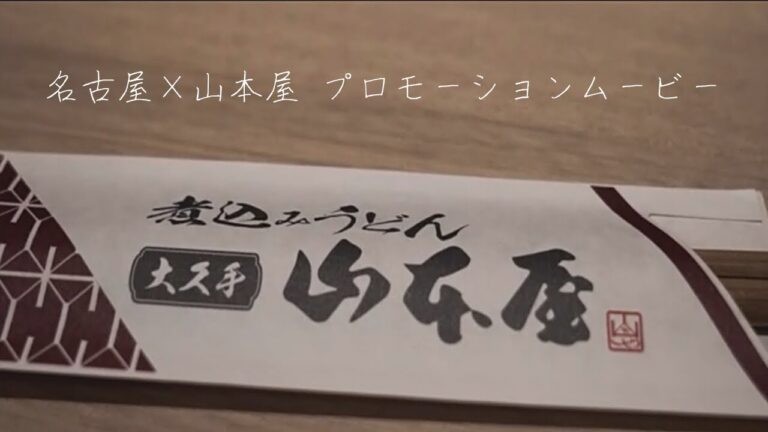 名古屋×山本屋 プロモーションムービー
煮込みうどん
大久手 山本屋